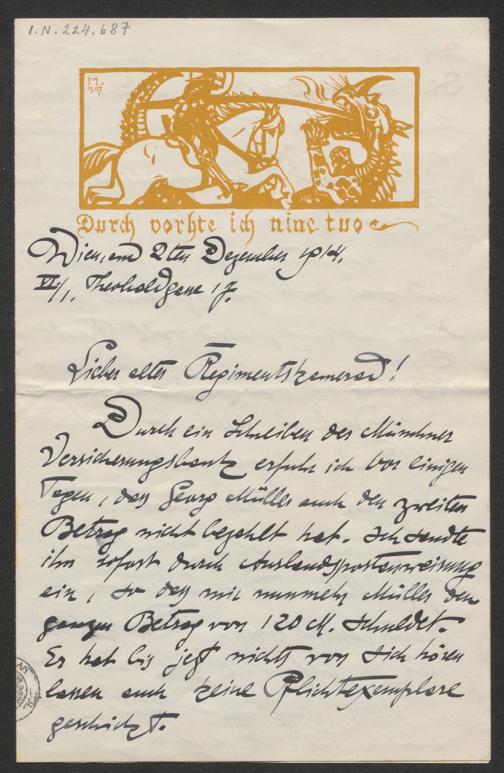 I.N. 224.687
Durch vorhte ich nine tuo
Wien, am 2ten Dezember 1914.
VI/1, Theobaldgasse 17.
Lieber alter Regimentskamerad!
Durch ein Schreiben der Münchner
Versicherungsbank erfuhr ich vor einigen
Tagen, dass Georg Müller auch den zweiten
Betrag nicht bezahlt hat. Ich sandte
ihn sofort durch Auslandspostanweisung
ein, so dass mir nunmehr Müller den
ganzen Betrag von 120 M. schuldet.
Er hat bis jetzt nichts von sich hören
lassen auch keine Pflichtexemplare
geschickt.